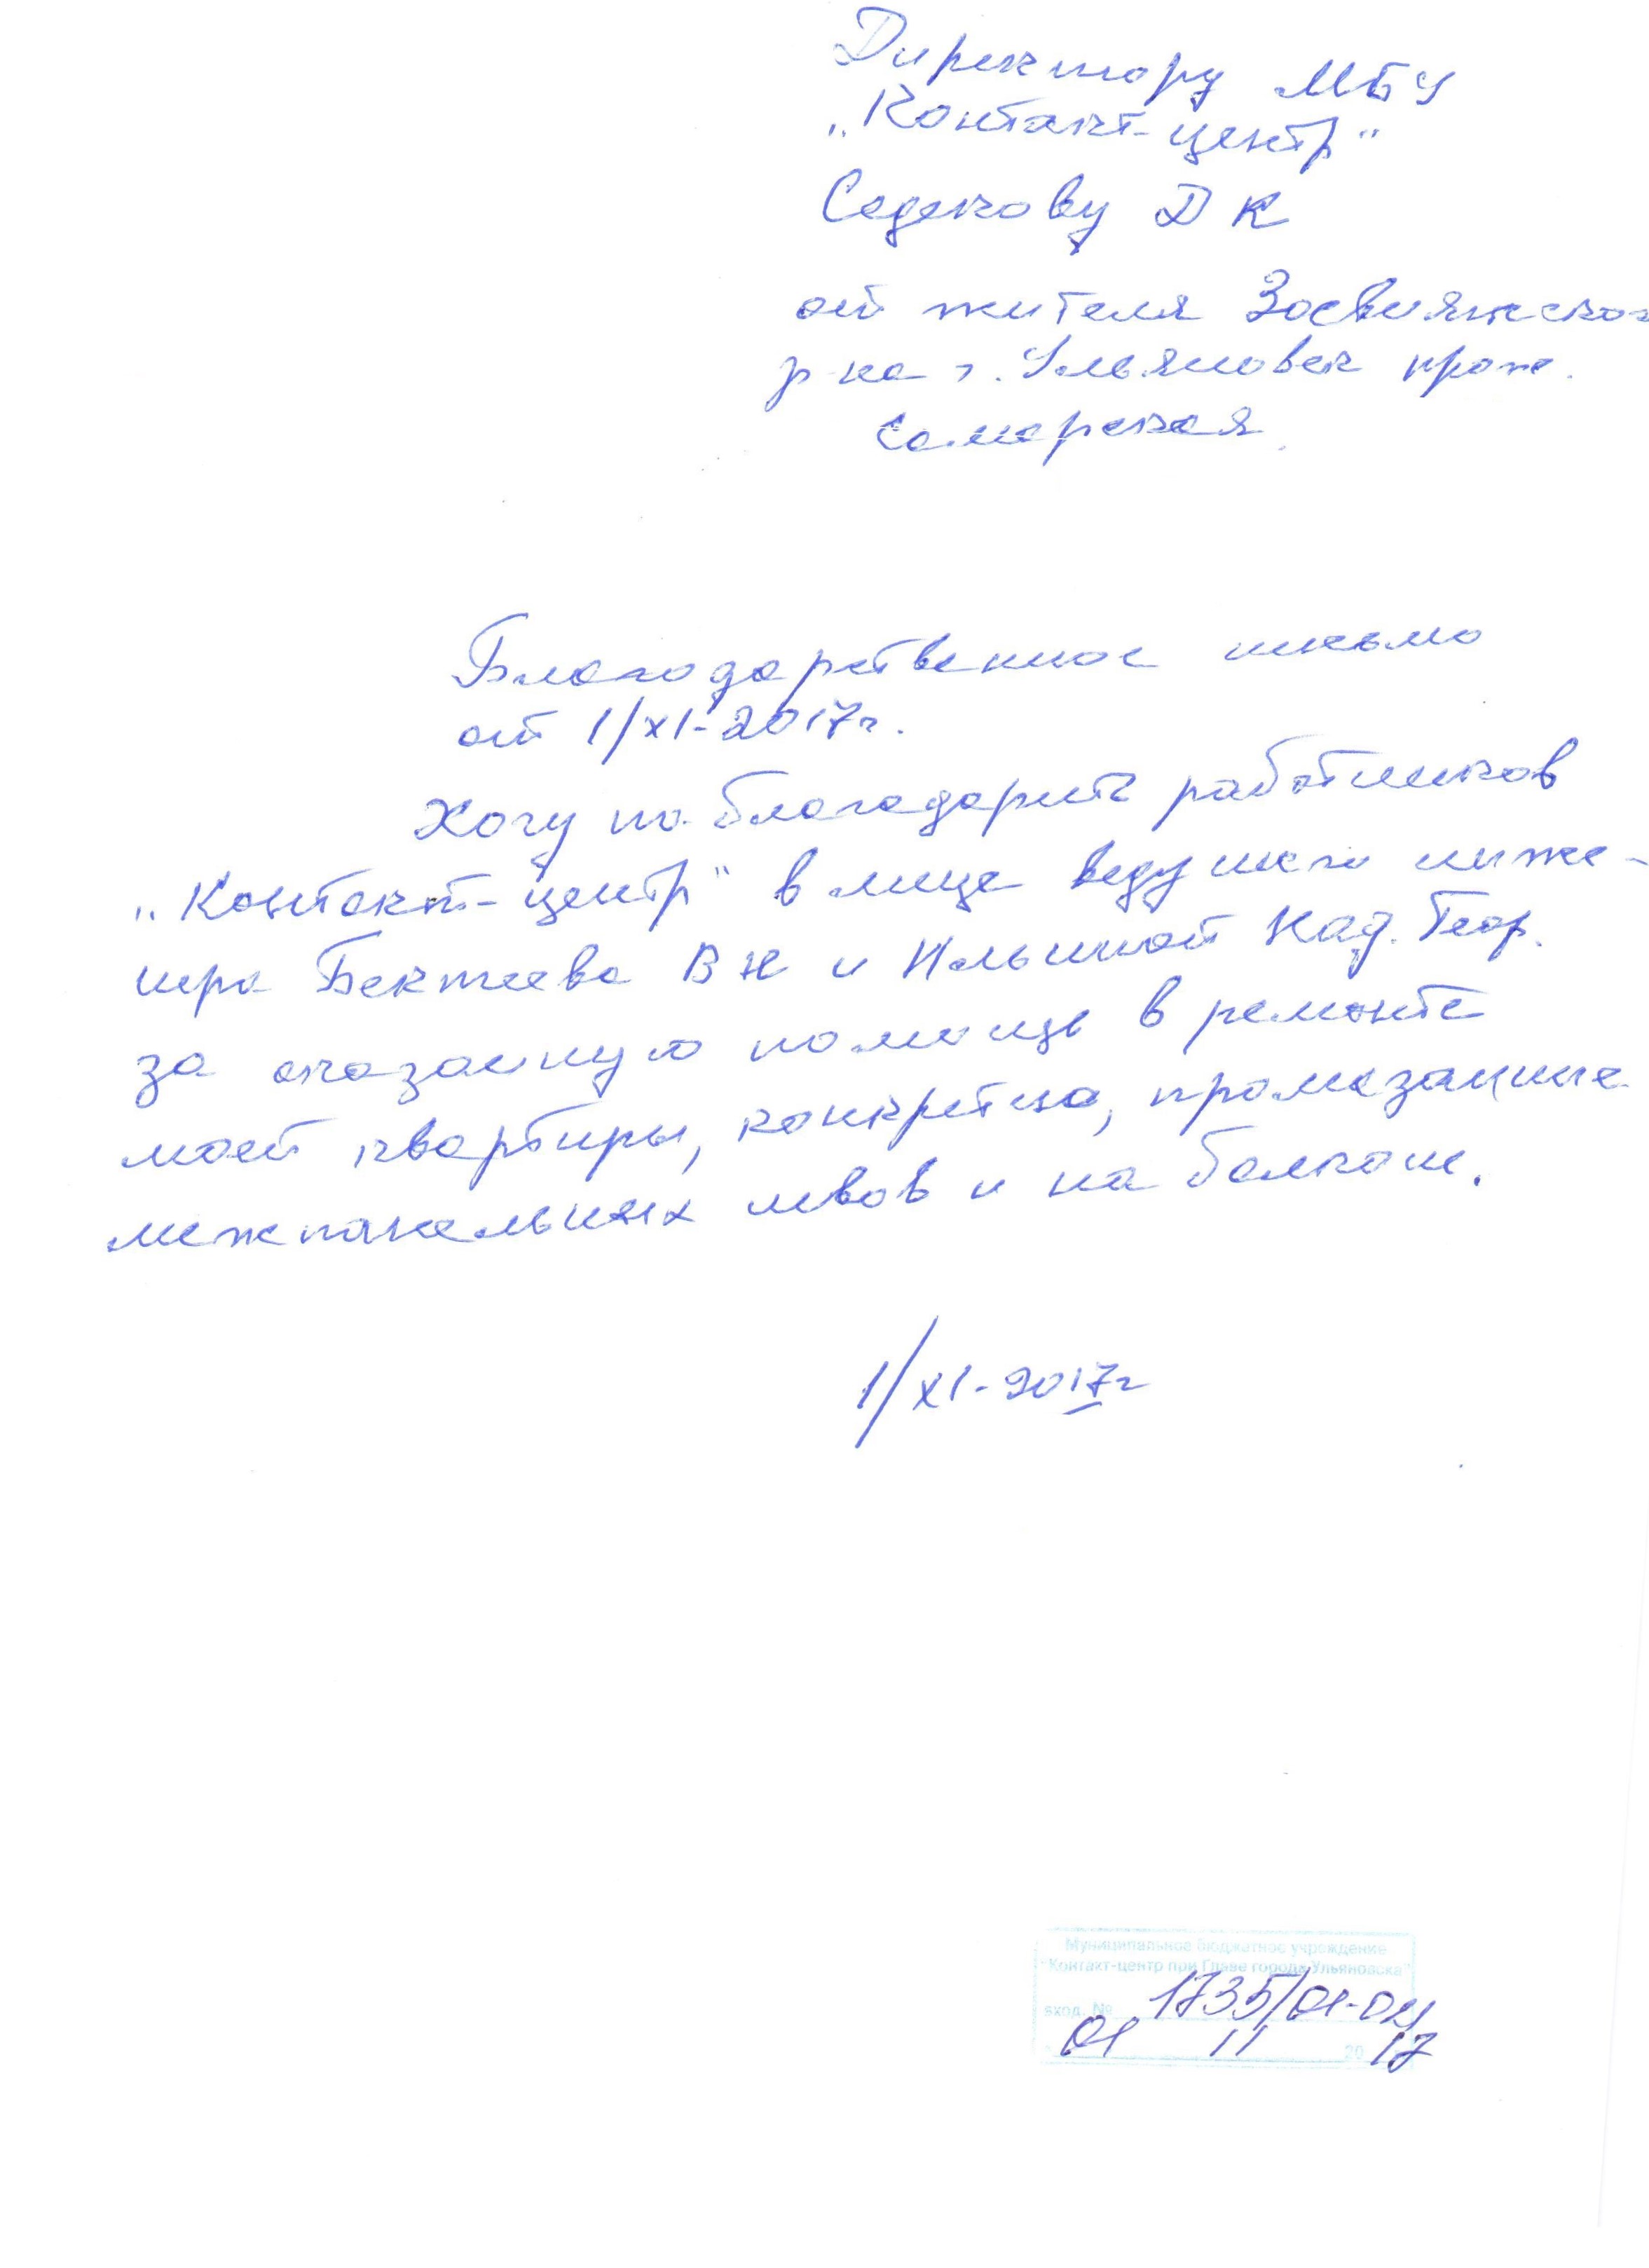 Директору МБУ
„Контакт-центр"
Седекову Д К
от жителя Засвияжског
р-на г. Ульяновск прож.
Самарская
Благодарственное письмо
от 1/XI-2017г.
Хочу поблагодарить работников
„Контакт-центр" в лице ведущего инже-
нера Бектеева В Н и Ильиной Над. Геор.
за оказанную помощь в ремонте
моей квартиры, конкретно, промазание
межпанельных швов и на балкон.
1/XI-2017г
Муниципальное бюджетное учреждение
"Контакт-центр при Главе города Ульяновска"
вход. № 1735/01-04
01 11 20 17